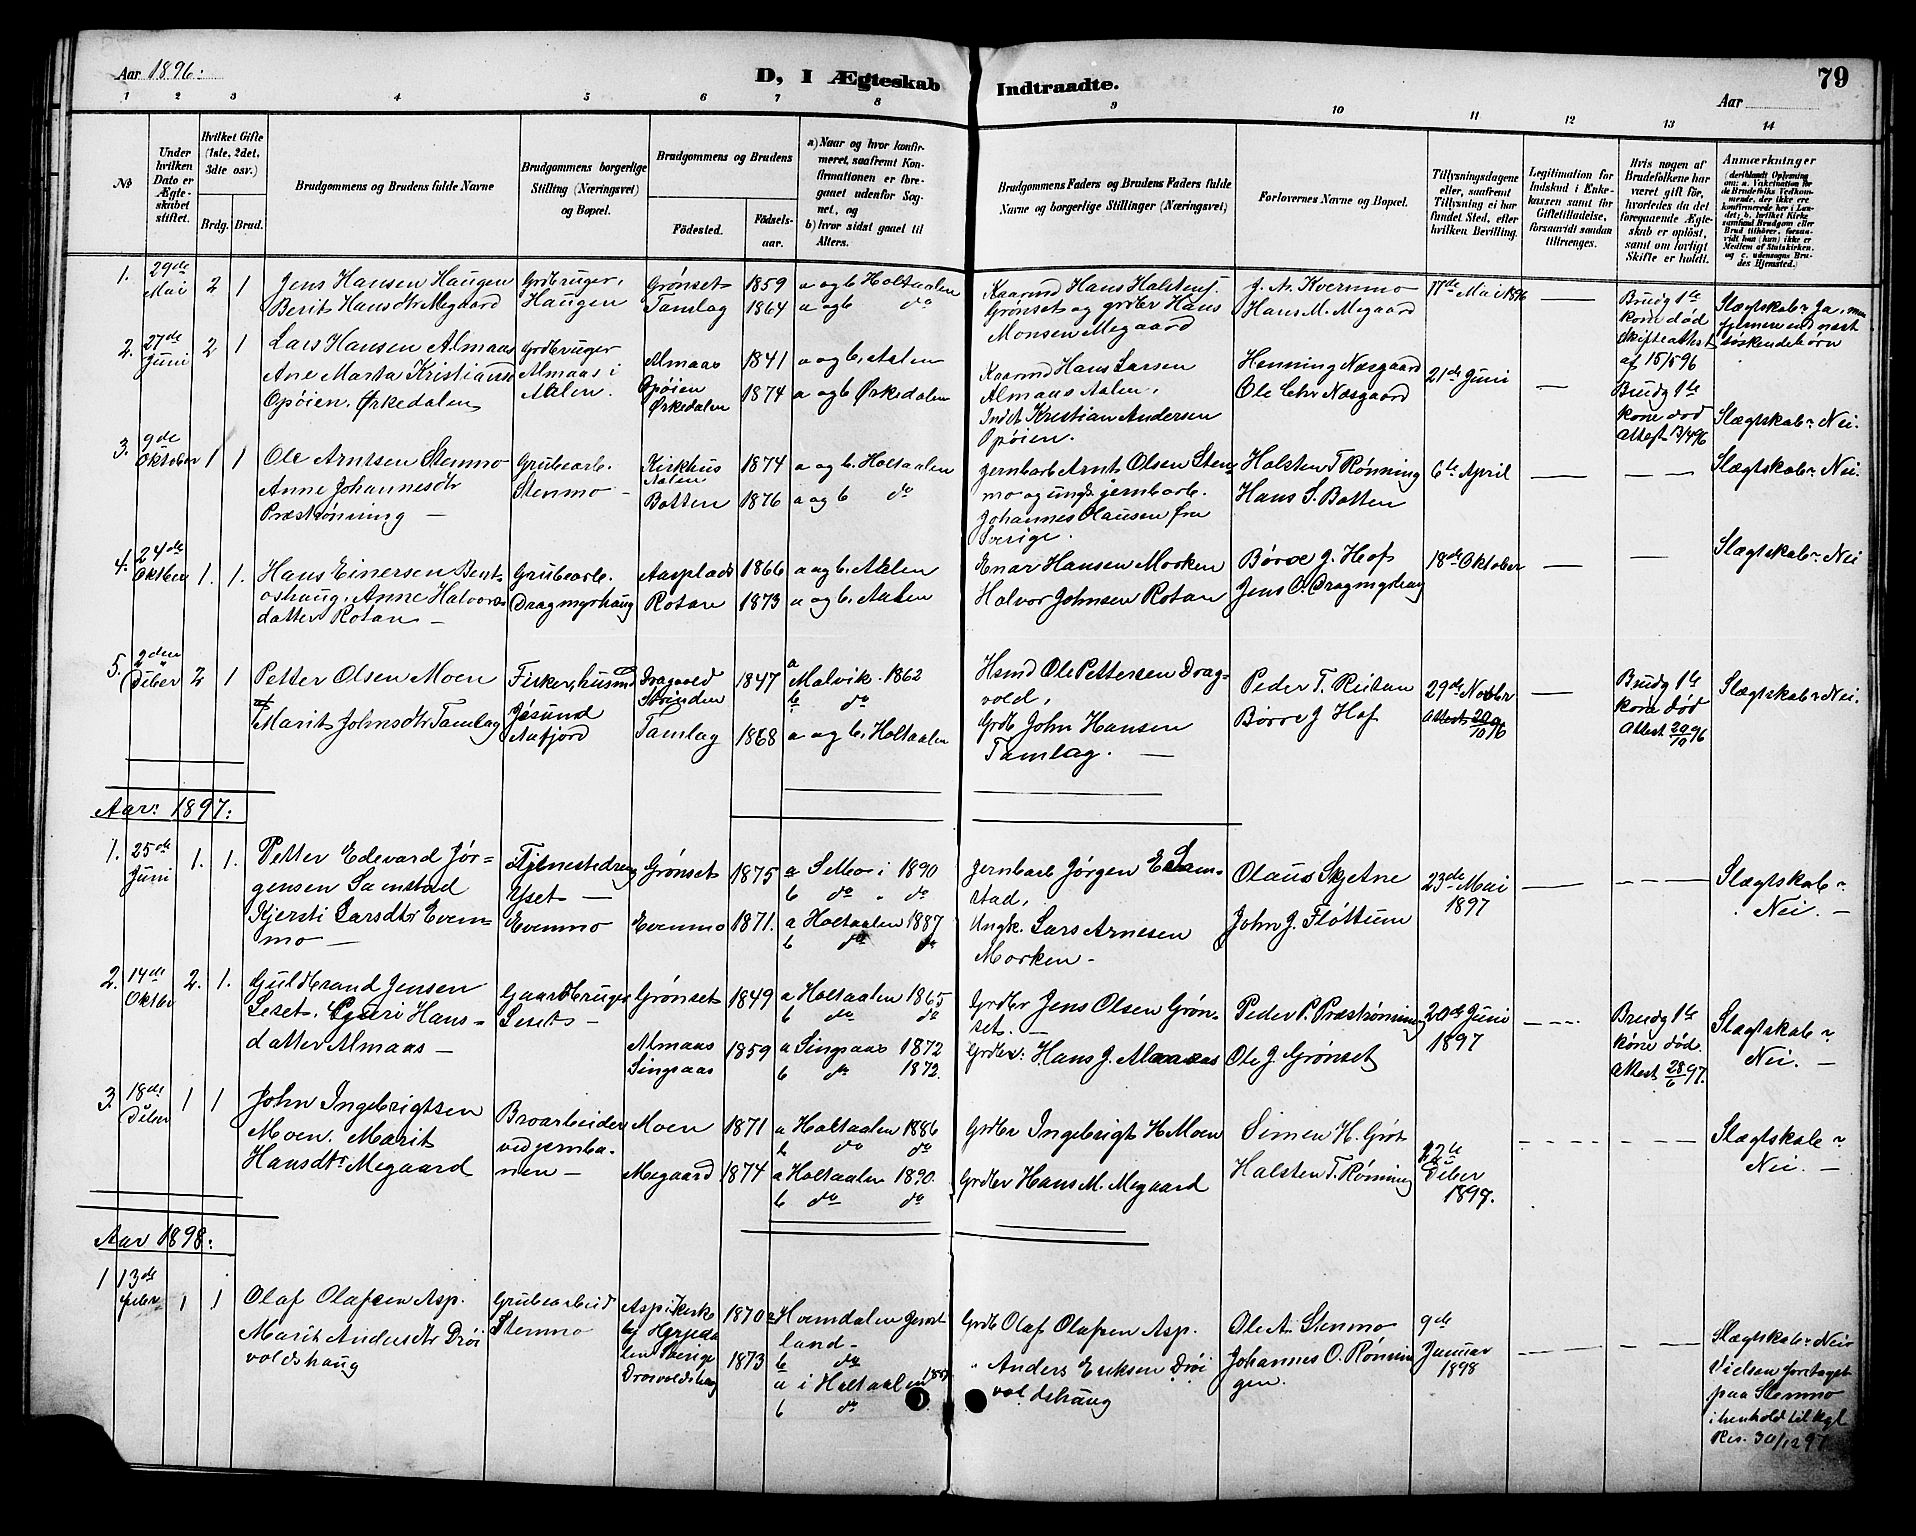 Aar 1896:
D, I Ægteskab Indtraadte.
79
Aar
1 2 3 4 5 6 7 8 9 10 11 12 13 14
No
Under hvilken Dato er Ægteskabet stiftet.
Hvilket Gifte (1ste, 2det, 3die osv.)
Brdg. Brud.
Brudgommens og Brudens fulde Navne
Brudgommens borgerlige Stilling (Næringsvei) og Bopæl.
Brudgommens og Brudens
Fødested.
Fødselsaar.
a) Naar og hvor konfirmeret, saafremt Konfirmationen er foregaaet udenfor Sognet, og
b) hvor sidst gaaet til Alters.
Brudgommens Faders og Brudens Faders fulde Navne og borgerlige Stillinger (Næringsvei)
Forlovernes Navne og Bopæl.
Tillysningsdagene eller, saafremt Tillysning ei har fundet Sted, efter hvilken Bevilling.
Legitimation for Indskud i Enkekassen samt for Giftetilladelse, forsaavidt saadan tiltrænges.
Hvis nogen af Brudefolkene har været gift før, hvorledes da det foregaaende Ægteskab er opløst, samt om lovligt Skifte er holdt.
Anmærkninger
1. 29de Mai 2 1
Jens Hansen Haugen
Berit Hansdtr Megaard
Grdbruger, Haugen
Grønset 1859 a og b Holtaalen
Tamlag 1864 a og b do
Kaarmd Hans Halstens. Grønset og grdbr Hans Monsen Megaard
J. N. Kvernmo
Hans M. Megaard
17de Mai 1896
Brudg 1te kone død Skifteattest af 15/5 96
Slægtskab: Ja, men fjernere end næstsøskendebørn
2. 27de Juni 2 1
Lars Hansen Almaas
Ane Marta Kristiansd
Opøien, Ørkedalen
Grdbruger Almaas i Aalen.
Almaas 1841 a og b. Aalen
Opøien Ørkedalen 1874 a og b Ørkedalen
Kaarmd Hans Larsen Almaas Aalen,
Indst Kristian Andersen Opøien.
Henning Næsgaard
Ole Chr Næsgaard
21de Juni
Brudg 1te kone død Attest 13/4 96
Slægtskab: Nei.
3. 9de Oktober 1 1
Ole Arntsen Stenmo
Anne Johannesdtr
Præstrønning
Grubearb. Stenmo
Kirkhus Aalen 1874 a og b. Holtaalen
Botten 1876 a og b do
Jernbarb Arnt Olsen Stenmo og ungk jernbarb. Johannes Olausen fra Sverige.
Halsten T Rønning
Hans S. Botten
6te April
Slægtskab: Nei.
4. 24de Oktber 1. 1.
Hans Einersen Bentoshaug, Anne Halvorsdatter Rotan
Grubearb. Dragmyrhaug
Aasplads 1866 a og b. Aalen
Rotan 1873 a og b. Aalen
Enar Hansen Morken
Halvor Johnsen Rotan
Børre J. Hof
Jens O. Dragmyrhaug
18de Oktober
Slægtskab: Nei
5. 2den Dcber 2 1
Petter Olsen Moen
Marit Johnsdtr Tamlag
Fisker, husmd Jøsund Aafjord
Dragvold Strinden 1847 a Malvik 1862 b do
Tamlag 1868 a og b. Holtaalen
Hsmd Ole Pettersen Dragvold,
Grdb John Hansen Tamlag.
Peder T. Reitan
Børre J Hof
29de Novbr Attest 20/10 96
Brudg 1te kone død Attest 20/10 96
Slægtskab: Nei.
Aar: 1897:
1. 25de Juni 1. 1.
Petter Edevard Jørgensen Samstad
Kjersti Larsdtr Evenmo
Yset
Evenmo
Grønset 1875 a 1890 b do do
Evenmo 1871. a Holtaalen 1887 b do do
Jernbarb Jørgen E Samstad,
Ungk. Lars Arnesen Morken
Olaus Skjetne
John J. Fløttum
23de Mai 1897
Slægtskab: Nei.
2. 14de Oktbr 2. 1.
Guldbrand Jensen Leset. Guri Hansdatter Almaas
Gaardbruger Leset
Grønset 1849 a Holtaalen 1865 b do do
Almaas Singsaas 1859 a Singsaas 1872 b do 1872.
Grdbr Jens Olsen Grønset.
Grdbr: Hans J. Almaas
Peder P. Præstrønning
Ole J. Grønset
20de Juni 1897
Brudg 1te kone død. Attest 28/6 97.
Slægtskab: Nei.
3. 18de Dcber 1 1
John Ingebrigtsen Moen. Marit Hansdtr Megaard
Broarbeider ved jernbanen
Moen 1871 a Holtaalen 1886 b do do
Megaard 1874 a Holtaalen 1890. b do do
Grdbr Ingebrigt H. Moen
Grdbr Hans M. Megaard
Simen H. Grøt
Halsten T. Rønning
12te Dcber 1897.
Slægtskab: Nei.
Aar 1898:
1 13de Feber 1 1
Olaf Olafsen Asp.
Marit Andersdtr Drøivoldshaug
Grubearbeid Stenmo
Asp i Herjedalen Sverige 1870
Drøivoldshaug 1873
a Hemdalen Jemtland b do
a i Holtaalen 1887 b do
Grdb Olaf Olafsen Asp.
" Anders Eriksen Drøivoldshaug
Ole A. Stenmo
Johannes O. Rønningen.
9de Januar 1898
Slægtskab: Nei
Vielsen foretaget paa Stenmo i henhold til Kgl Res. 30/12 97